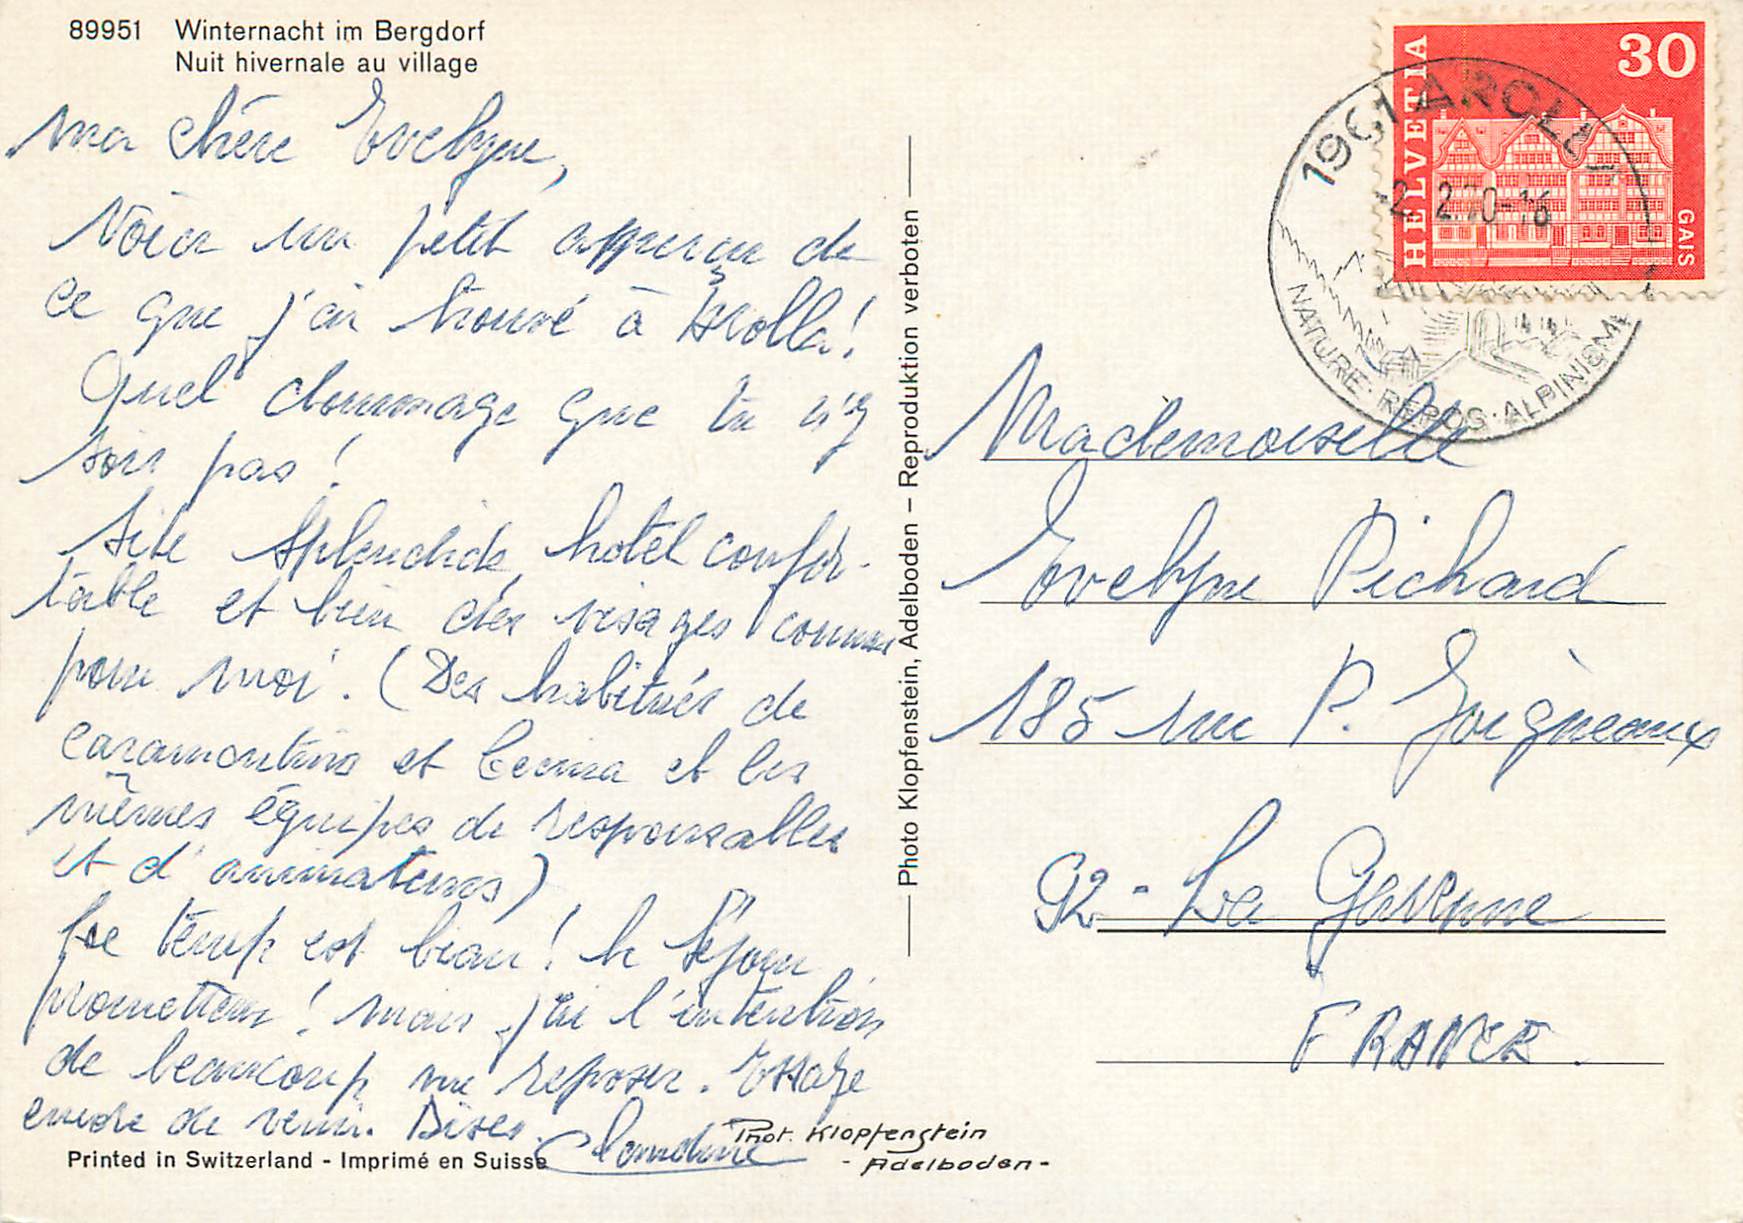 89951 Winternacht im Bergdorf
Nuit hivernale au village
Ma chère Evelyne,
Voici un petit aperçu de
ce que j'ai trouvé à Arolla!
Quel dommage que tu n'y
sois pas!
Site splendide, hotel confor-
table et bien des visages connus
pour moi. (Des habitués de
caramontino et Cecina et les
mêmes équipes de responsables
et d'animateurs)
Le temps est beau! le séjour
prometteur! mais j'ai l'intention
de beaucoup me reposer. Essaye
encore de venir. Bises.
Claudine
Printed in Switzerland - Imprimé en Suisse
Phot. Klopfenstein
- Adelboden -
Photo Klopfenstein, Adelboden – Reproduktion verboten
HELVETIA
30
GAIS
1961 AROLLA
-2. 2.70-16
NATURE · REPOS · ALPINISME
Mademoiselle
Evelyne Pichard
185 rue P. Joigneaux
92 - La Garenne
FRANCE.